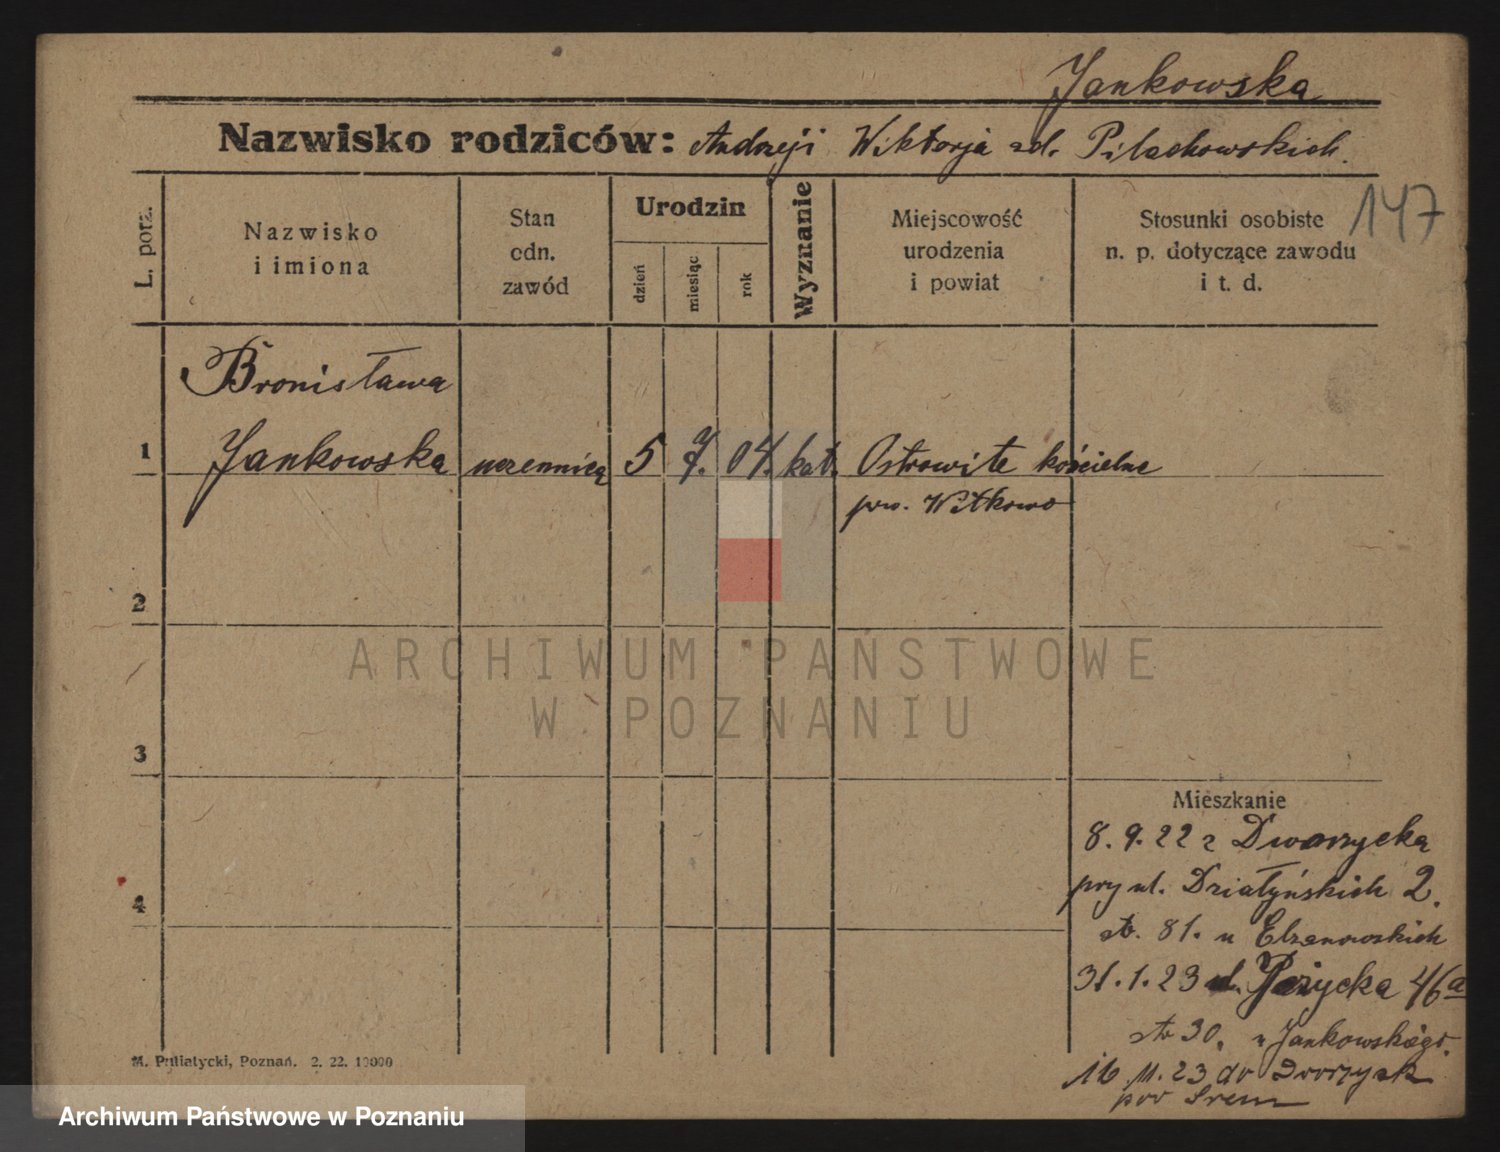 Jankowska
Nazwisko rodziców: Andrzeji Wiktorja zd. Pilachowskich.
147
L. porz.
Nazwisko
i imiona
Stan
cdn.
zawód
Urodzin
dzień
miesiąc
rok
Wyznanie
Miejscowość
urodzenia
i powiat
Stosunki osobiste
n. p. dotyczące zawodu
i t. d.
Bronisława
1 Jankowska uczennica 5 7. 04. kat. Ostrowite kościelne
pow. Witkowo
2
ARCHIWUM PAŃSTWOWE
W POZNANIU
3
Mieszkanie
8. 9. 22 z Dworzycka
przy ul. Działyńskich 2.
4
str. 81. u Elzanowskich
31. 1. 23 ul. 46a
str 30. u Jankowskiego.
16 11. 23 do Dworzysk
pow Srem
M. Putiatycki, Poznań. 2. 22. 10000
Archiwum Państwowe w Poznaniu